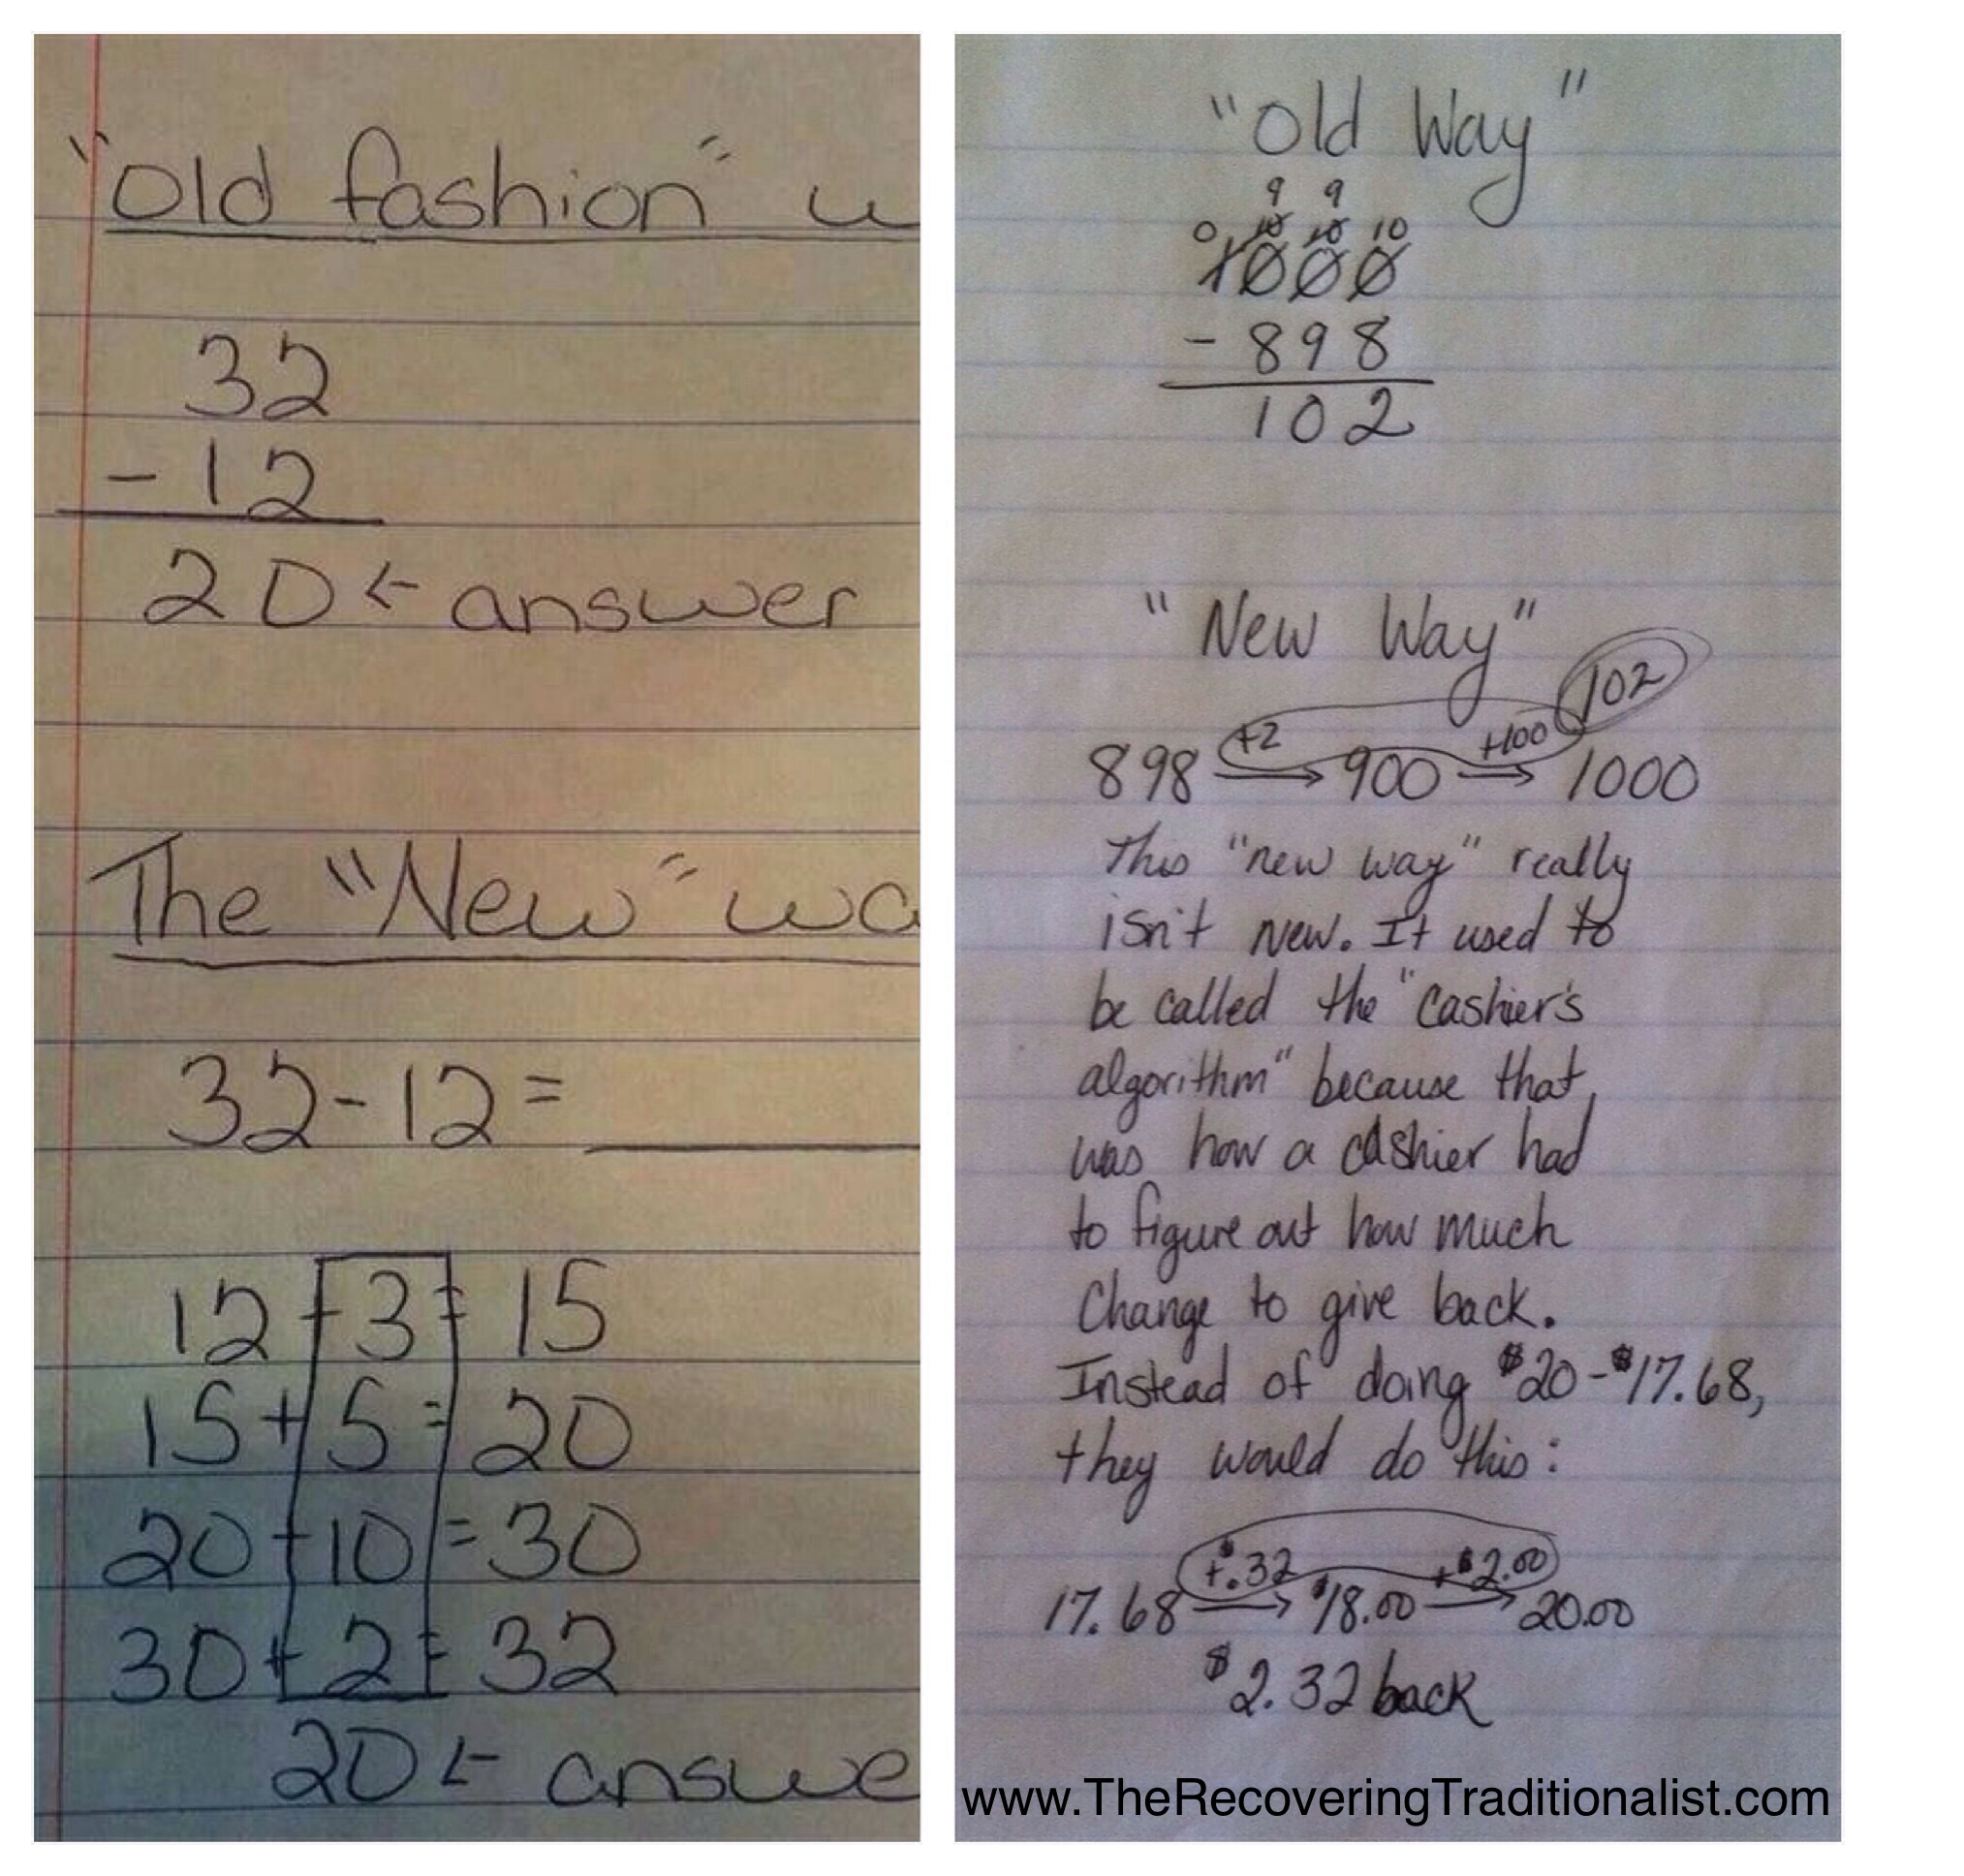 "Old fashion" w
32
- 12
20 ← answer
The "New" wa
32-12=
12+3=15
15+5=20
20+10=30
30+2=32
20 ← answe
"Old Way"
9 9
0 10 10 10
1000
- 898
102
"New Way"
102
+2 +100
898 → 900 → 1000
This "new way" really
isn't new. It used to
be called the "cashier's
algorithm" because that
was how a cashier had
to figure out how much
change to give back.
Instead of doing $20-$17.68,
they would do this:
+$.32 +$2.00
17.68 → $18.00 → 20.00
$2.32 back
www.TheRecoveringTraditionalist.com